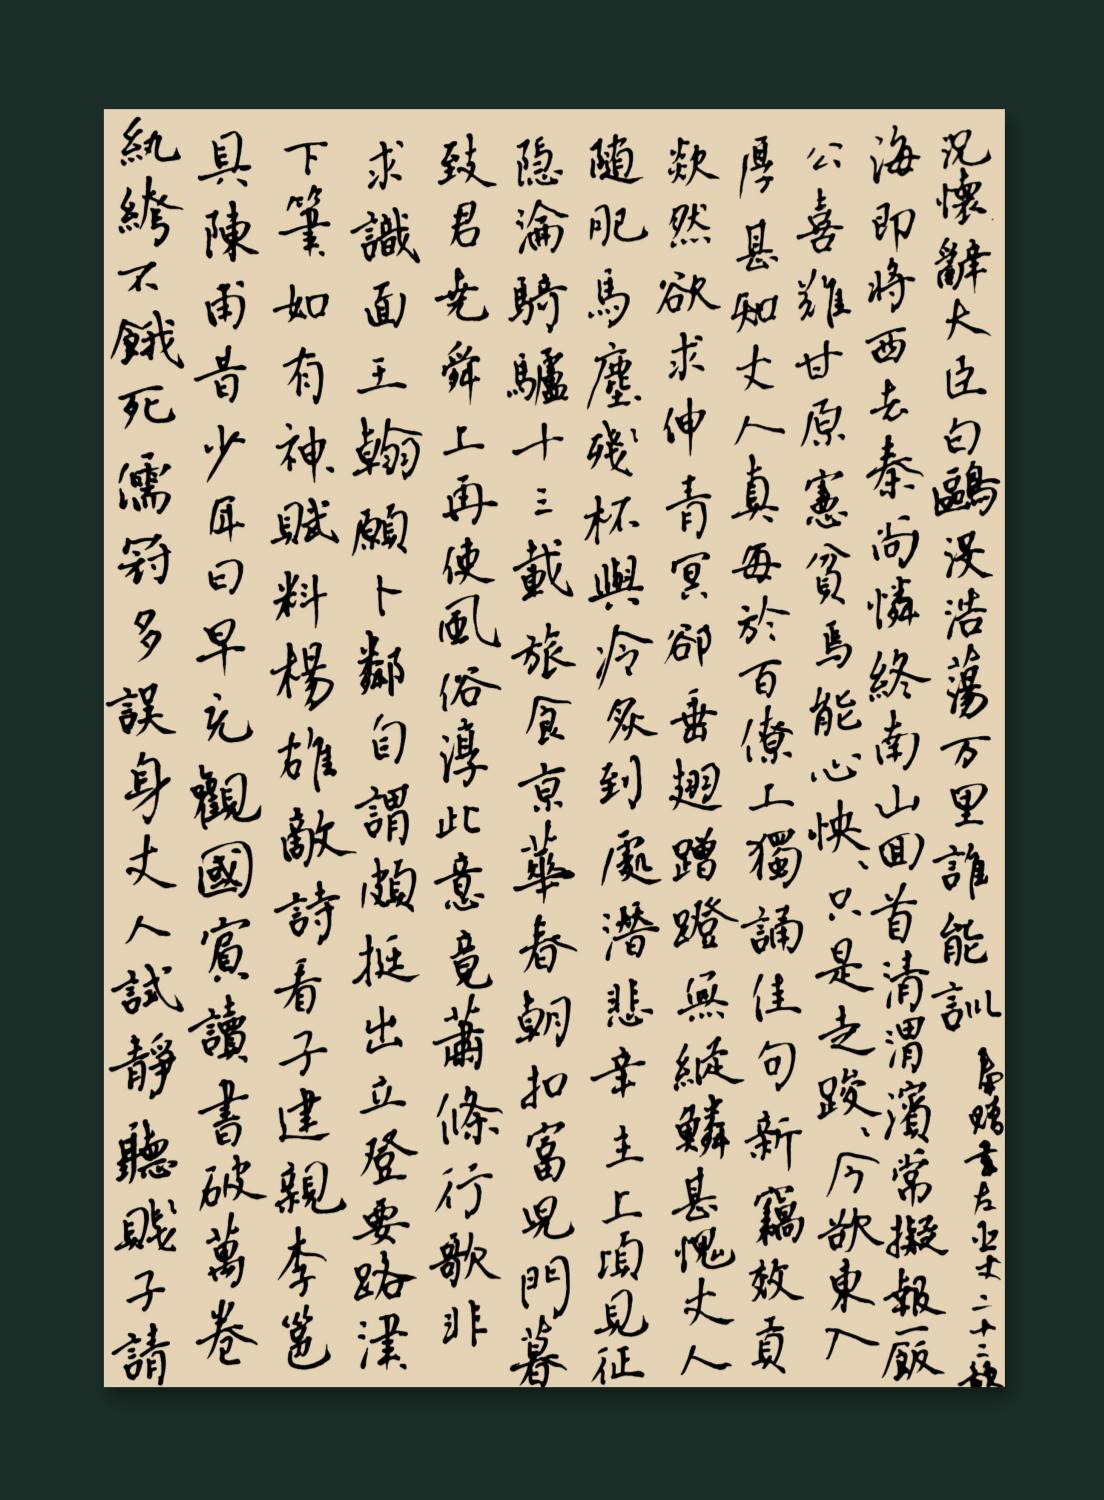 紈絝不餓死儒冠多誤身丈人試靜聽賤子請
具陳甫昔少年日早充觀國賓讀書破萬卷
下筆如有神賦料楊雄敵詩看子建親李邕
求識面王翰願卜鄰自謂頗挺出立登要路津
致君堯舜上再使風俗淳此意竟蕭條行歌非
隐淪騎驢十三載旅食京華春朝扣富兒門暮
隨肥馬塵殘杯與冷炙到處潛悲辛主上頃見征
欻然欲求伸青冥卻垂翅蹭蹬無縱鱗甚愧丈人
厚甚知丈人真每於百僚上獨誦佳句新竊效貢
公喜難甘原憲貧焉能心怏、只是走踆、今欲東入
海即將西去秦尚憐終南山回首清渭濱常擬報一飯
況懷辭大臣白鷗沒浩蕩万里誰能訓
奉贈韋左丞丈二十二韻